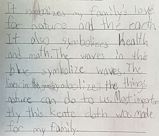 It symbolizes my family's love
for nature and the earth.
It also symbolizes health
and math. The waves in the
blue symbolize waves. The
in the symbolized the things
nature can do to us. Most importantly
this Kente cloth was made
for my family.